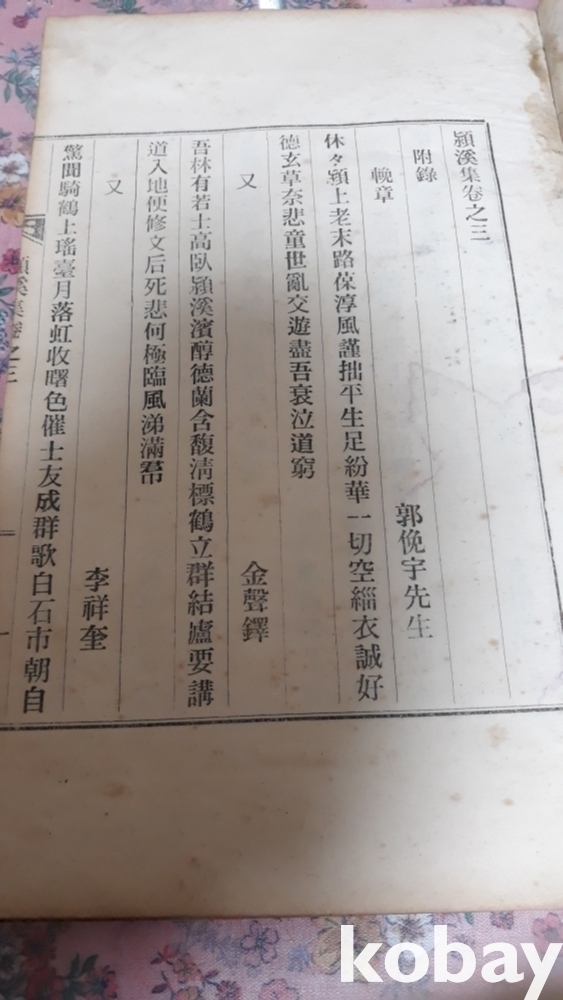 潁溪集卷之三
附錄
輓章
郭俛宇先生
休々潁上老末路葆淳風謹拙平生足紛華一切空緇衣誠好
德玄草奈悲童世亂交遊盡吾衰泣道窮
又
金聲鐸
吾林有若士高臥潁溪濱醇德蘭含馥淸標鶴立群結廬要講
道入地便修文后死悲何極臨風涕滿帬
又
李祥奎
驚聞騎鶴上瑤臺月落虹收曙色催士友成群歌白石市朝自
潁溪集卷之三
一
kobay